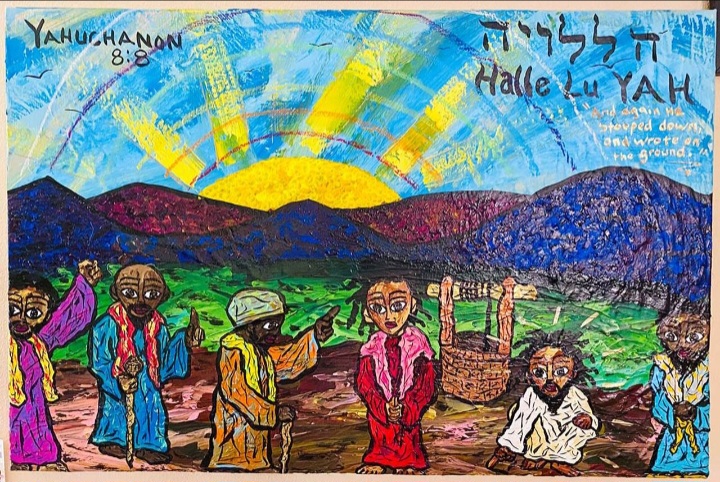 YAHUCHANON
8:8
הללויה
Halle Lu YAH
"And again He
stooped down,
and wrote on
the ground."